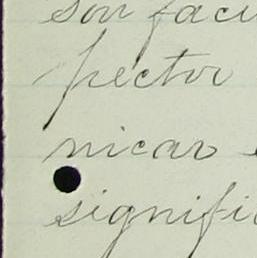 son faci
pector
nicar
signific